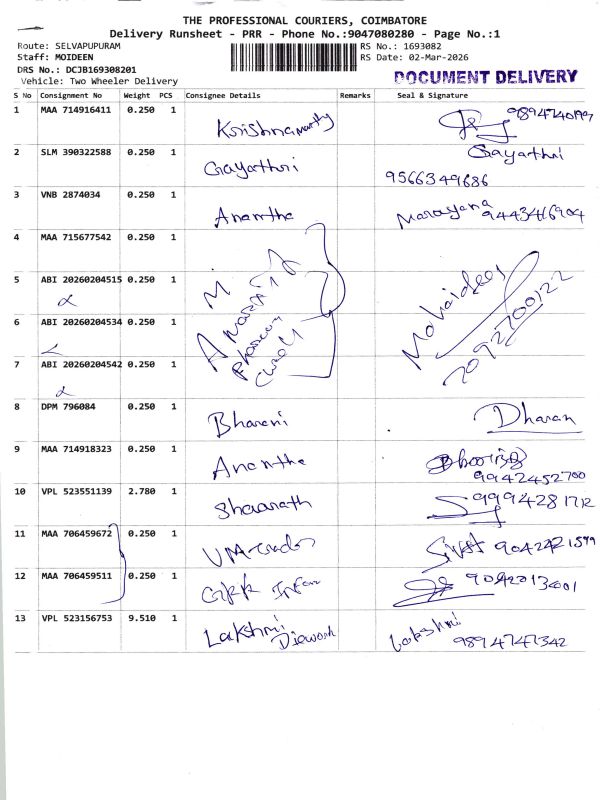 THE PROFESSIONAL COURIERS, COIMBATORE
Delivery Runsheet - PRR - Phone No.:9047080280 - Page No.:1
Route: SELVAPUPURAM
RS No.: 1693082
Staff: MOIDEEN
RS Date: 02-Mar-2026
DRS No.: DCJB169308201
Vehicle: Two Wheeler Delivery
DOCUMENT DELIVERY
S No Consignment No Weight PCS Consignee Details Remarks Seal & Signature
1 MAA 714916411 0.250 1
2 SLM 390322588 0.250 1 Gayathri Gayathri
9566349686
3 VNB 2874034 0.250 1 Anantha Narayana
9443416904
4 MAA 715677542 0.250 1
5 ABI 20260204515 0.250 1
6 ABI 20260204534 0.250 1
7 ABI 20260204542 0.250 1
8 DPM 796084 0.250 1 Bharani Dharan
9 MAA 714918323 0.250 1 Anantha
9942452700
10 VPL 523551139 2.780 1 Sharath 9994281712
11 MAA 706459672 0.250 1
12 MAA 706459511 0.250 1
13 VPL 523156753 9.510 1 Lakshmi Lakshmi
9894747342